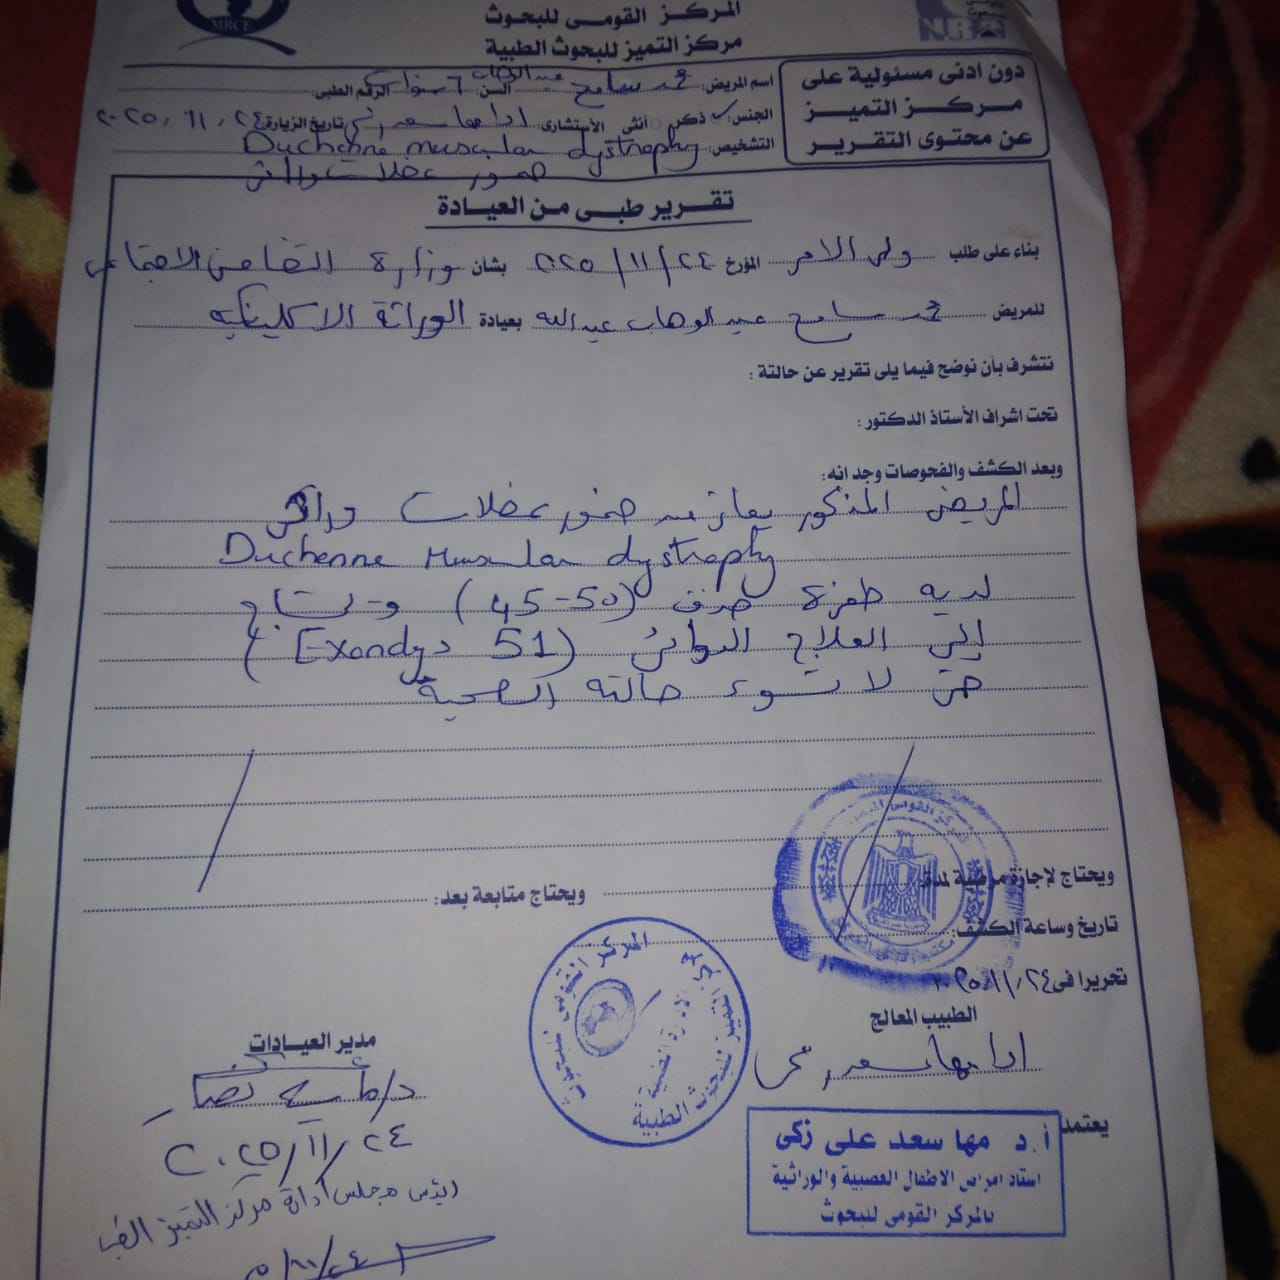 المركز القومى للبحوث
مركز التميز للبحوث الطبية
MRCE
NRC
دون ادنى مسئولية على
مركز التميز
عن محتوى التقرير
اسم المريض: محمد سامح عبد الوهاب السن: ٦ سنوات الرقم الطبى:
الجنس: ✓ ذكر أنثى الأستشارى: ا.د/ مها سعد زكي تاريخ الزيارة ٢٠٢٥/١١/٢٤
التشخيص: Duchenne muscular dystrophy
ضمور عضلات وراثى
تقرير طبى من العيادة
بناء على طلب ولى الامر المؤرخ ٢٠٢٥/١١/٢٤ بشأن وزارة التضامن الاجتماعى
للمريض محمد سامح عبد الوهاب عبد الله بعيادة الوراثة الاكلينيكيه
نتشرف بأن نوضح فيما يلى تقرير عن حالتة :
تحت اشراف الأستاذ الدكتور :
وبعد الكشف والفحوصات وجد انه:
المريض المذكور يعانى من ضمور عضلات وراثى
Duchenne Muscular dystrophy
لديه طفرة حذف (45-50) و يحتاج
إلى العلاج الدوائى (Exondys 51)
حتى لا تسوء حالته الصحية
ويحتاج لإجازة مرضية لمدة:
ويحتاج متابعة بعد:
تاريخ وساعة الكشف:
تحريرا فى ٢٠٢٥/١١/٢٤
الطبيب المعالج
ا.د/ مها سعد زكي
مدير العيادات
٢٠٢٥/١١/٢٤
المركز القومى للبحوث
مركز التميز للبحوث الطبية
يعتمد
أ.د مها سعد على زكى
استاذ امراض الاطفال العصبية والوراثية
بالمركز القومى للبحوث
رئيس مجلس ادارة مركز التميز الطبى